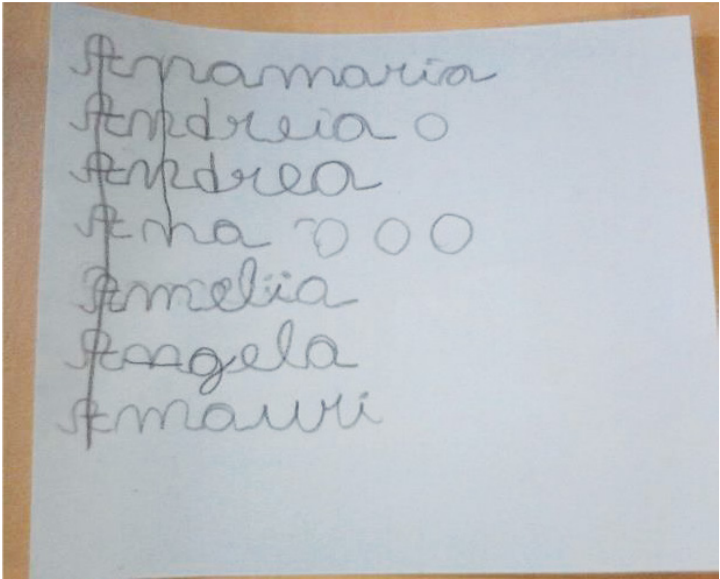 Anamaria
Andreia O
Andrea
Ana O O O
Amelia
Angela
Amauri